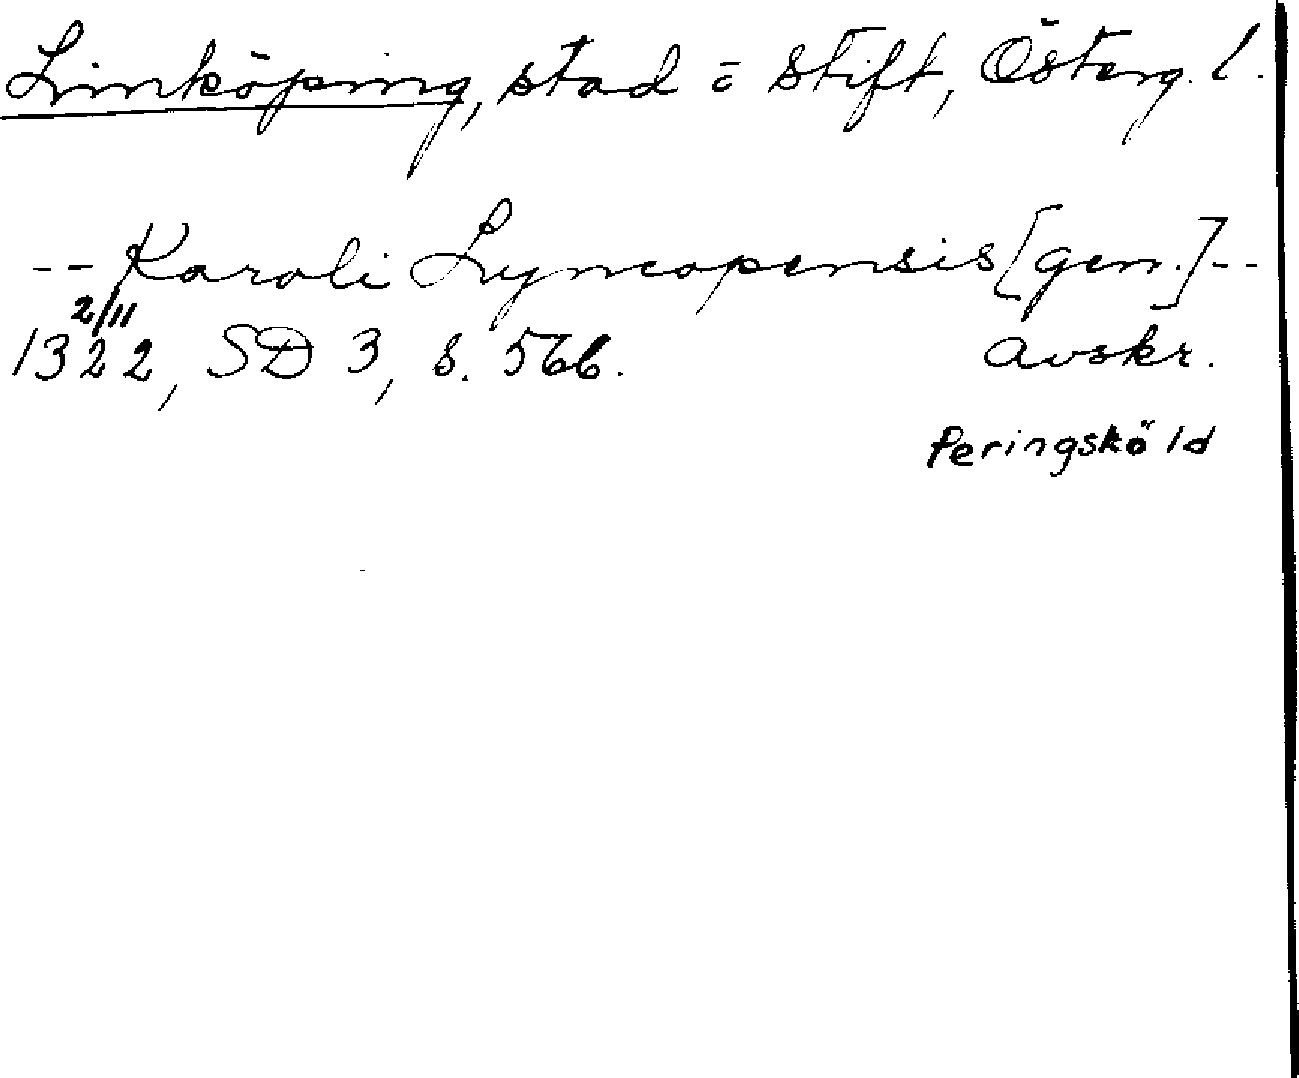 Linköping, stad o stift, Österg. l.
-- Karoli Lyncopensis [gen.] --
2/11
1322, SD 3, s. 566. avskr.
Peringsköld